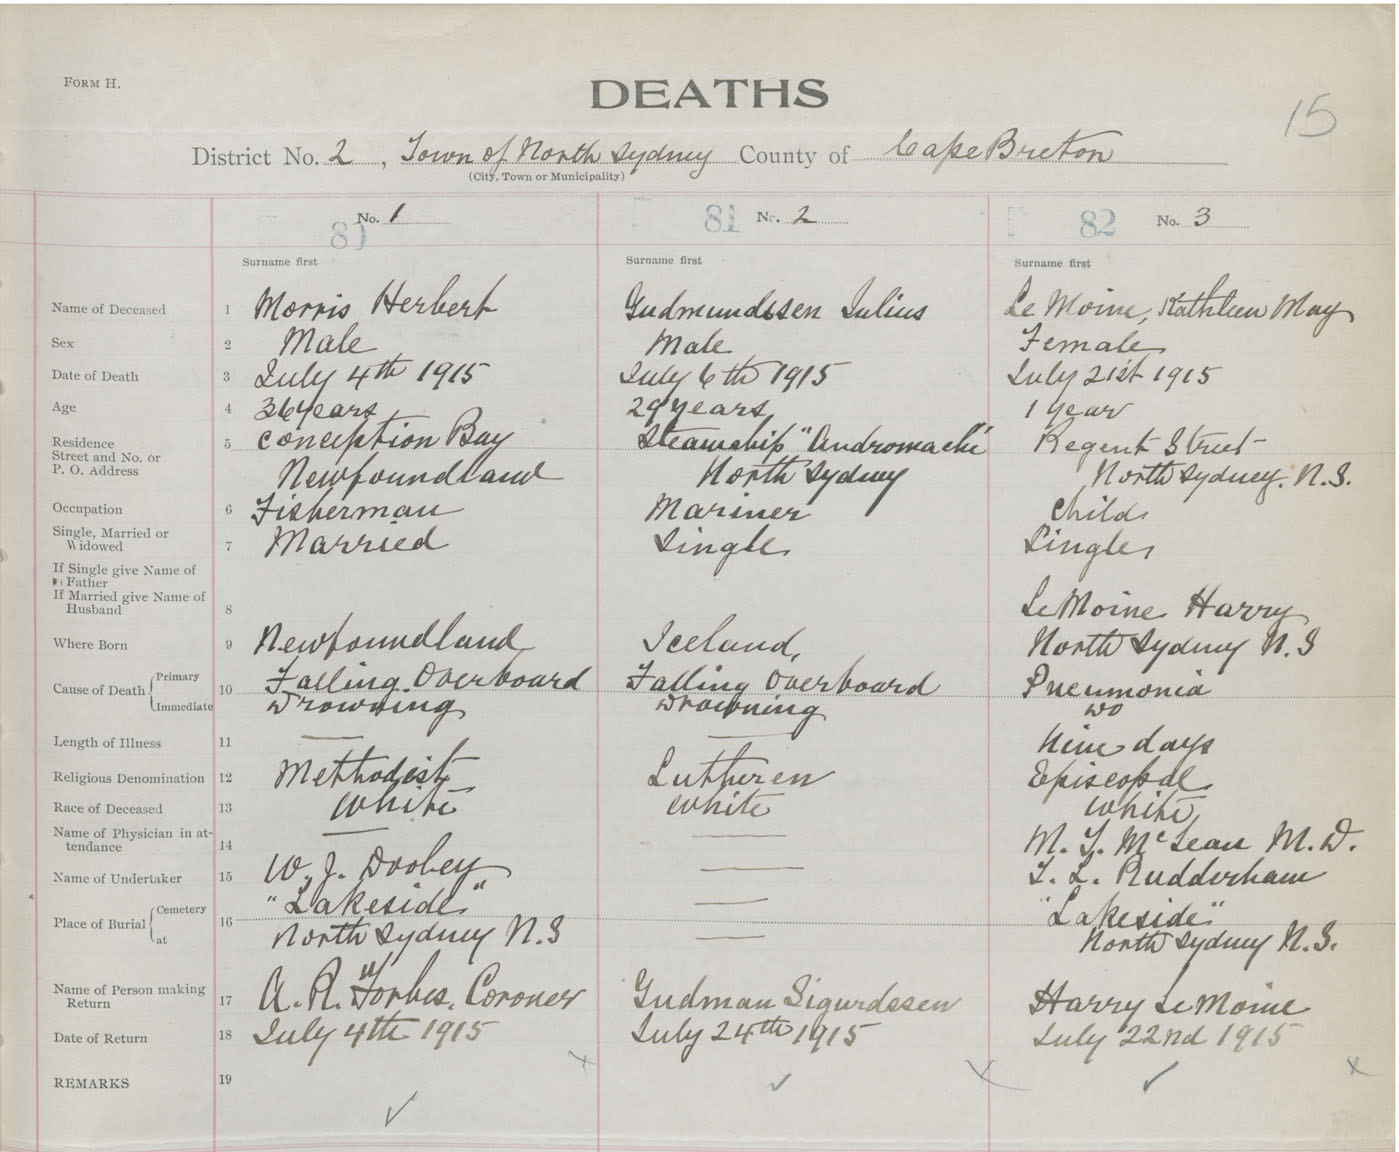 FORM H.
DEATHS
15
District No. 2, Town of North Sydney County of Cape Breton
(City, Town or Municipality)
No. 1 81 No. 2 82 No. 3
Surname first Surname first Surname first
Name of Deceased 1 Morris Herbert Gudmundssen Julius Le Moine, Kathleen May
Sex 2 Male Male Female
Date of Death 3 July 4th 1915 July 6th 1915 July 21st 1915
Age 4 36 years 29 years 1 year
Residence 5 Conception Bay Steamship "Andromache" Regent Street
Street and No. or
P. O. Address Newfoundland North Sydney North Sydney. N.S.
Occupation 6 Fisherman Mariner Child
Single, Married or
Widowed 7 Married Single Single
If Single give Name of
Father
If Married give Name of
Husband 8 Le Moine Harry
Where Born 9 Newfoundland Iceland, North Sydney N.S
Cause of Death Primary 10 Falling Overboard Falling Overboard Pneumonia
Immediate Drowning Drowning Do
Length of Illness 11 — — Nine days
Religious Denomination 12 Methodist Lutheren Episcopal
Race of Deceased 13 White White White
Name of Physician in at-
tendance 14 — — M. T. McLean M.D.
Name of Undertaker 15 W. J. Dooley — T. L. Rudderham
Place of Burial Cemetery 16 "Lakeside" — "Lakeside"
at North Sydney N.S — North Sydney N.S.
Name of Person making
Return 17 A. R. Forbes, Coroner Gudman Sigurdssen Harry Le Moine
Date of Return 18 July 4th 1915 July 24th 1915 July 22nd 1915
REMARKS 19